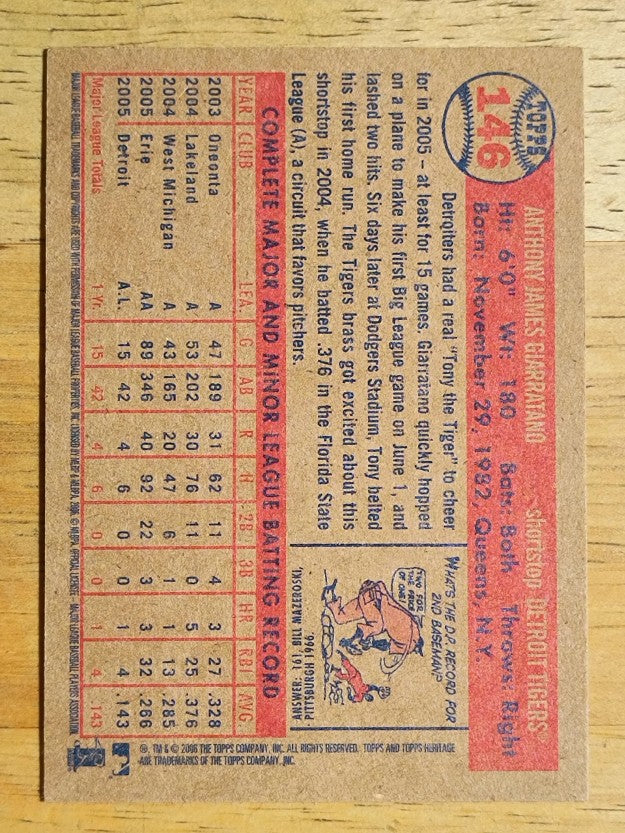 TOPPS
146
ANTHONY JAMES GIARRATANO shortstop DETROIT TIGERS
Ht: 6'0" Wt: 180 Bats: Both Throws: Right
Born: November 29, 1982, Queens, N.Y.
Detroiters had a real "Tony the Tiger" to cheer
for in 2005 – at least for 15 games. Giarratano quickly hopped
on a plane to make his first Big League game on June 1, and
lashed two hits. Six days later at Dodgers Stadium, Tony belted
his first home run. The Tigers brass got excited about this
shortstop in 2004, when he batted .376 in the Florida State
League (A), a circuit that favors pitchers.
WHAT'S THE D.P. RECORD FOR
2ND BASEMAN?
TWO FOR
THE PRICE
OF ONE!
ANSWER: 161 BILL MAZEROSKI,
PITTSBURGH 1966
COMPLETE MAJOR AND MINOR LEAGUE BATTING RECORD
YEAR CLUB LEA. G AB R H 2B 3B HR RBI AVG.
2003 Oneonta A 47 189 31 62 11 4 3 27 .328
2004 Lakeland A 53 202 30 76 11 0 5 25 .376
2004 West Michigan A 43 165 20 47 6 1 1 13 .285
2005 Erie AA 89 346 40 92 22 3 3 32 .266
2005 Detroit A.L. 15 42 4 6 0 0 1 4 .143
Major League Totals 1-Yr. 15 42 4 6 0 0 1 4 .143
®, TM & © 2006 THE TOPPS COMPANY, INC. ALL RIGHTS RESERVED. TOPPS AND TOPPS HERITAGE
ARE TRADEMARKS OF THE TOPPS COMPANY, INC.
MAJOR LEAGUE BASEBALL TRADEMARKS AND COPYRIGHTS ARE USED WITH PERMISSION OF MAJOR LEAGUE BASEBALL PROPERTIES, INC. © MLBPA OFFICIAL LICENSEE – MAJOR LEAGUE BASEBALL PLAYERS ASSOCIATION